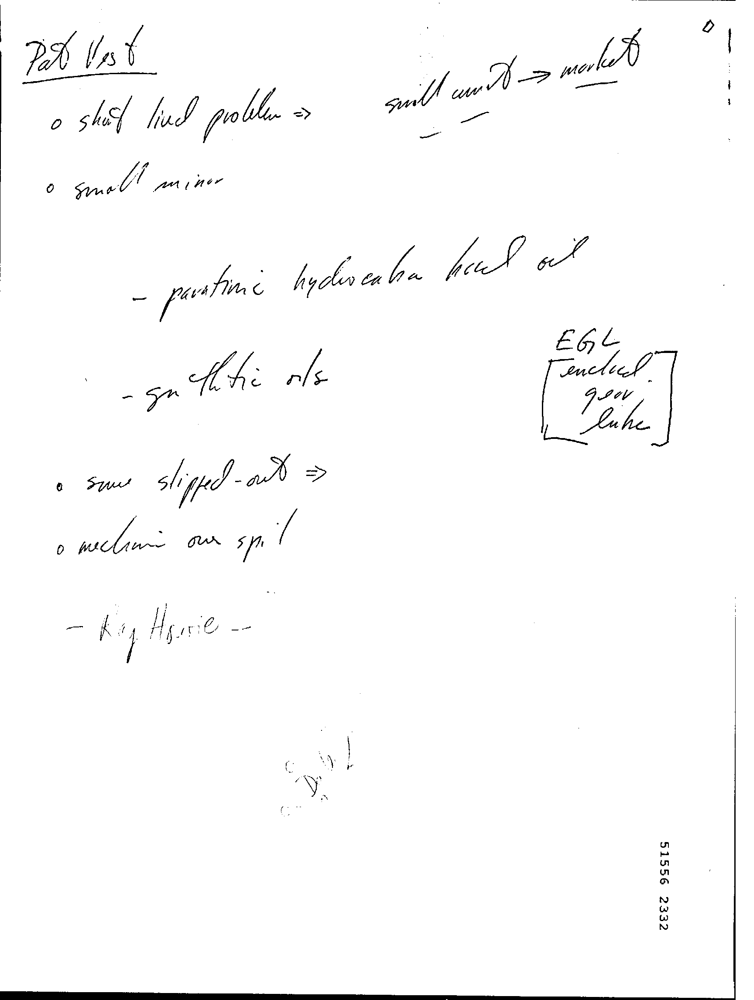 Pat Vest
o short lived problem ⇒ small amnt → market
o small minor
- parafinic hydrocarbon based oil
- synthetic oils
EGL
[enclosed
gear
lube]
• some slipped-out ⇒
o mechanic over spil
- Ray
51556 2332